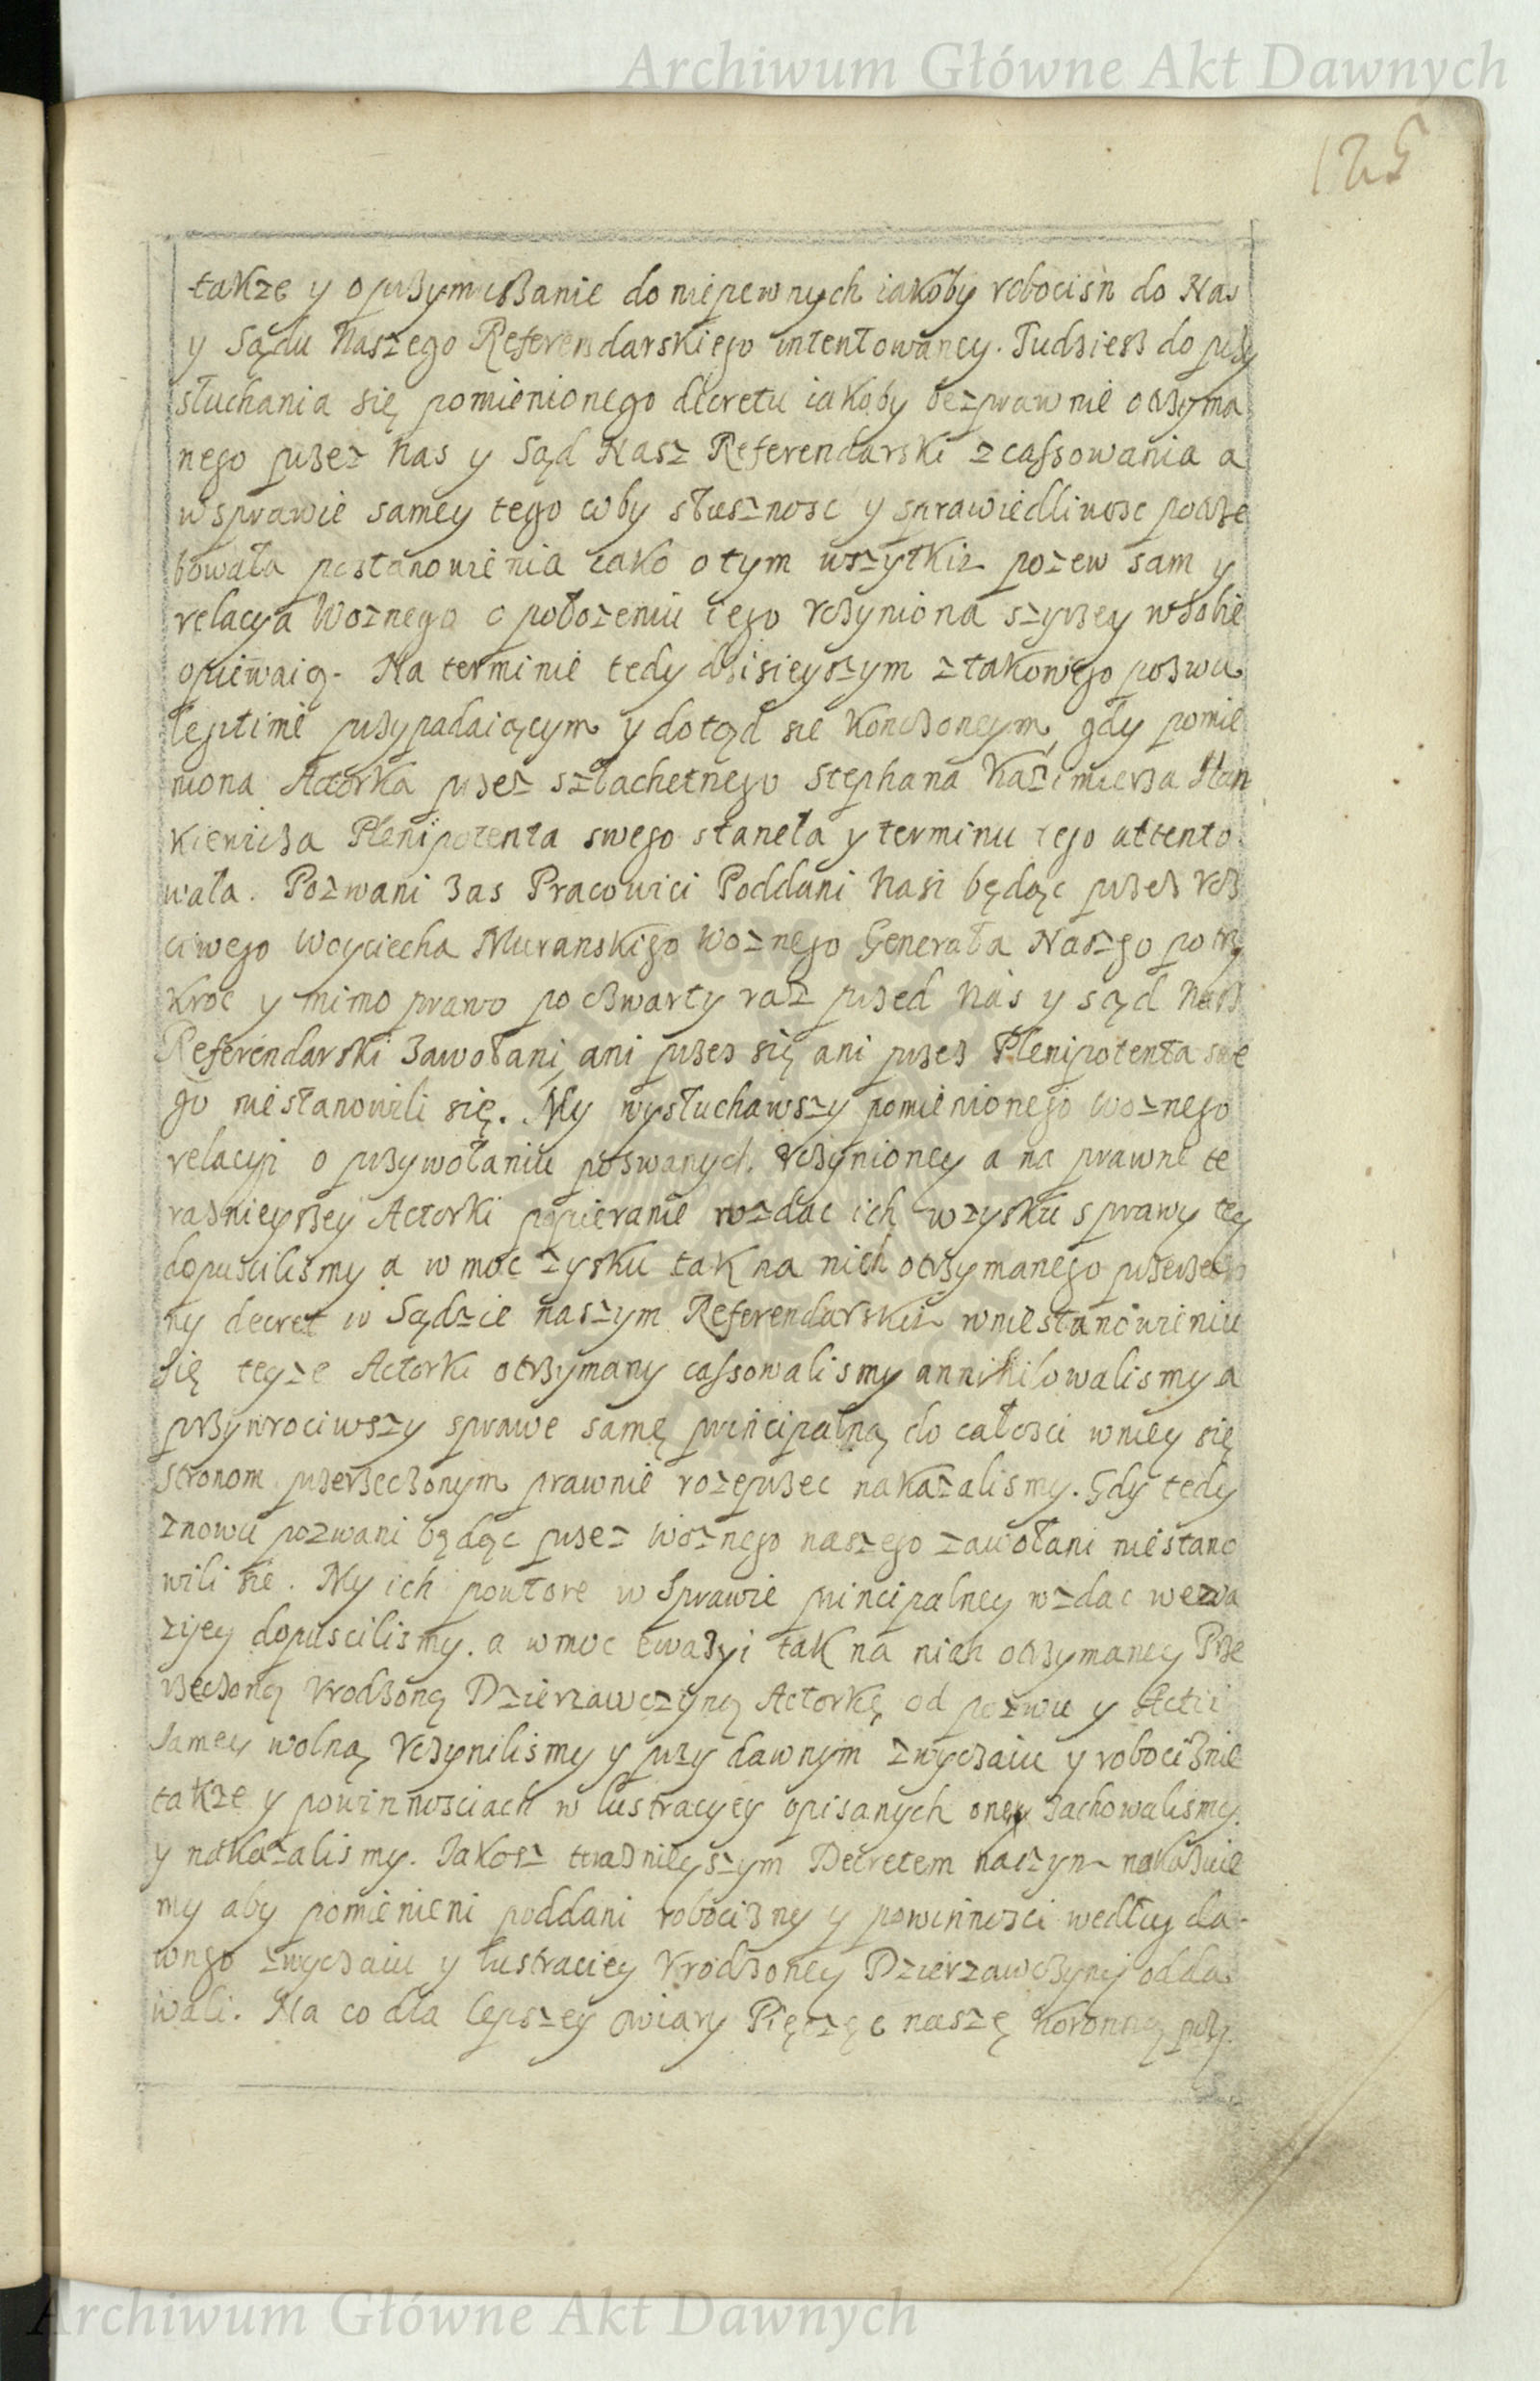 Archiwum Główne Akt Dawnych
125
także y o przymuszanie do niepewnych iakoby robocisn do Nas
y Sądu Naszego Referendarskiego intentowaney. Tudziesz do przy
słuchania się pomienionego decretu iakoby bezprawnie otrzyma
nego przez Nas y Sąd Nasz Referendarski zcassowania a
w sprawie samey tego coby słusznosc y sprawiedliwosc potrze
bowała postanowienia iako o tym wszytkim pozew sam y
relacya Woznego o położeniu iego vczyniona szyrzey w sobie
opiewaią. Na terminie tedy dzisieyszym z takowego pozwu
legitime przypadaiącym y dotąd sie konczoncym, gdy pomie
niona Actorka przez szlachetnego Stephana Kazimierza Stan
kiewicza Plenipotenta swego staneła y terminu tego attento
wała. Pozwani zas Pracowici Poddani Nasi będąc przez vcz
ciwego Woyciecha Muranskigo Woznego Generała Naszgo po trzy
kroc y mimo prawo po czwarty raz przed Nas y sąd Nasz
Referendarski zawołani, ani przez się ani przez Plenipotenta swe
go niestanowili się. My wysłuchawszy pomienionego Woznego
relacyi o przywołaniu pozwanych vczynioney a na prawne te
raznieyszey Actorki popieranie wzdac ich w zysku sprawy tey
dopuscilismy a w moc zysku tak na nich otrzymanego przerzeczo
ny decret w Sądzie naszym Referendarskim w niestanowieniu
się teyze Actorki otrzymany cassowalismy annihilowalismy a
przywrociwszy sprawe samę principalną do całosci w niey się
stronom przerzeczonym prawnie rozeprzec nakazalismy. Gdy tedy
znowu pozwani będąc przez Woznego naszego zawołani niestano
wili sie. My ich powtore w Sprawie principalney wzdac w ewa
ziey dopuscilismy. a w moc ewazyi tak na nich otrzymaney Prze
rzeczoną Vrodzoną Dzierzawczyną Actorkę od pozwu y Actii
samey wolną vczynilismy y przy dawnym zwyczaiu y robociznie
także y powinnosciach w lustracyey opisanych oney zachowalismy
y nakazalismy. Jakosz teraznieyszym Decretem naszym nakazuie
my aby pomienieni poddani robocizny y powinnosci według da-
wngo zwyczaiu y lustraciey Vrodzoney Dzierzawczyney odda
wali. Na co dla lepszey wiary Pięczęc naszę koronną przy
Archiwum Główne Akt Dawnych